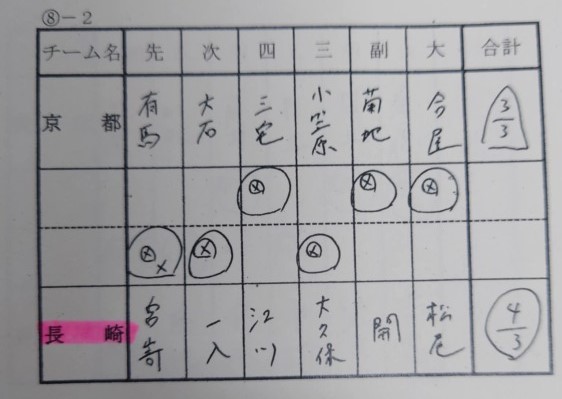 ⑧－2
チーム名 先 次 四 三 副 大 合計
京都 有馬 大石 三宅 小笠原 菊地 今尾 3/3
ⓧ ⓧ ⓧ
ⓧx ⓧ ⓧ
長崎 宮嵜 一入 江川 大久保 開 松尾 4/3